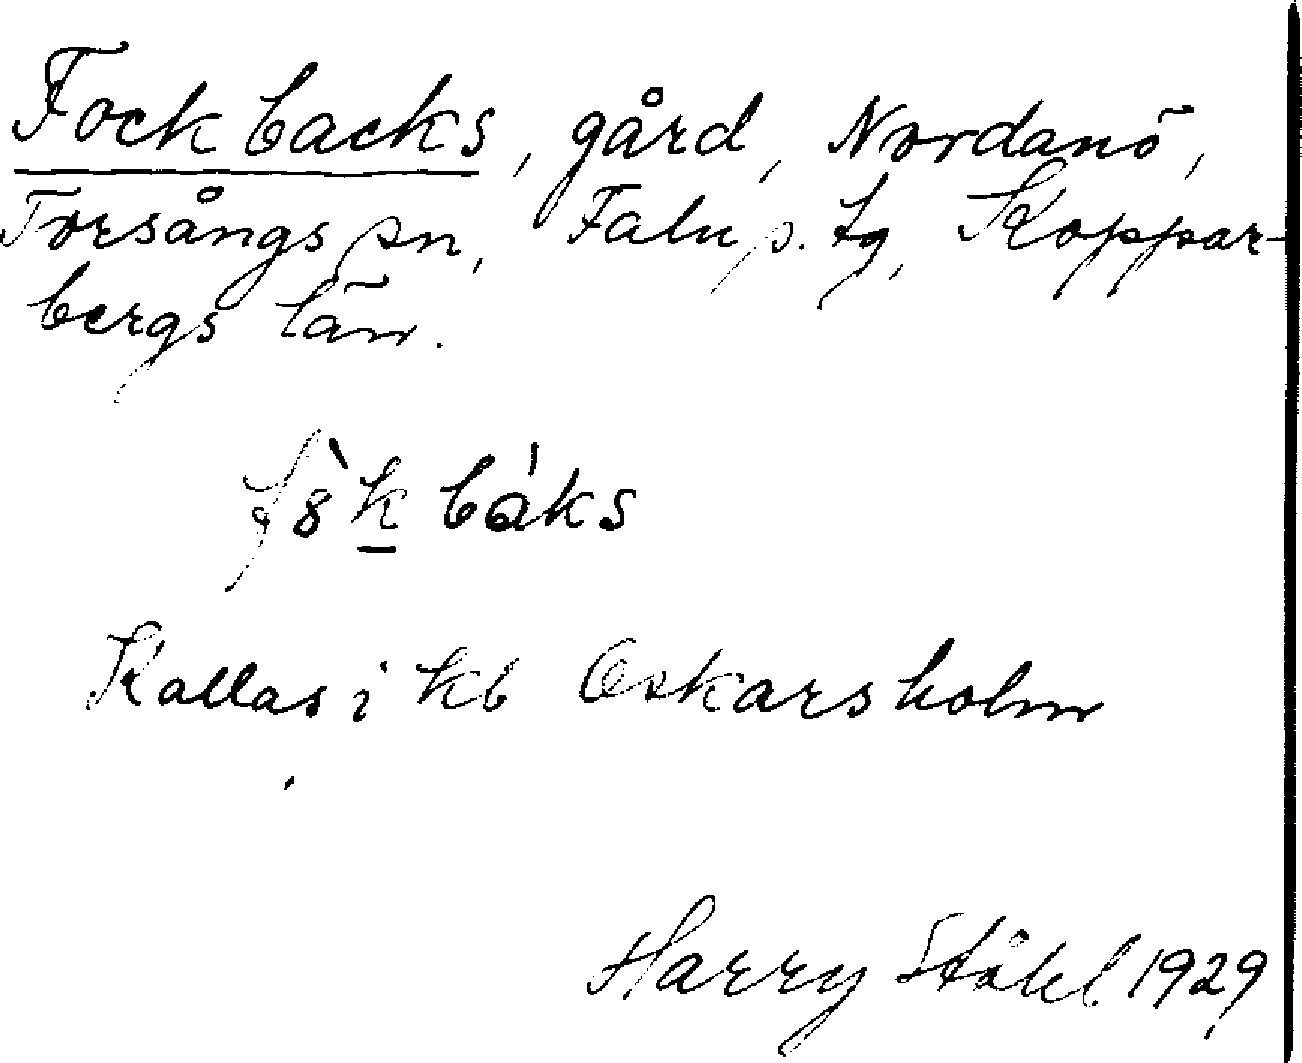 Fockbacks, gård, Nordanö,
Torsångs sn, Falu p. tg, Koppar-
bergs län.
Kallas i kb Oskarsholm
Harry Ståhl 1929